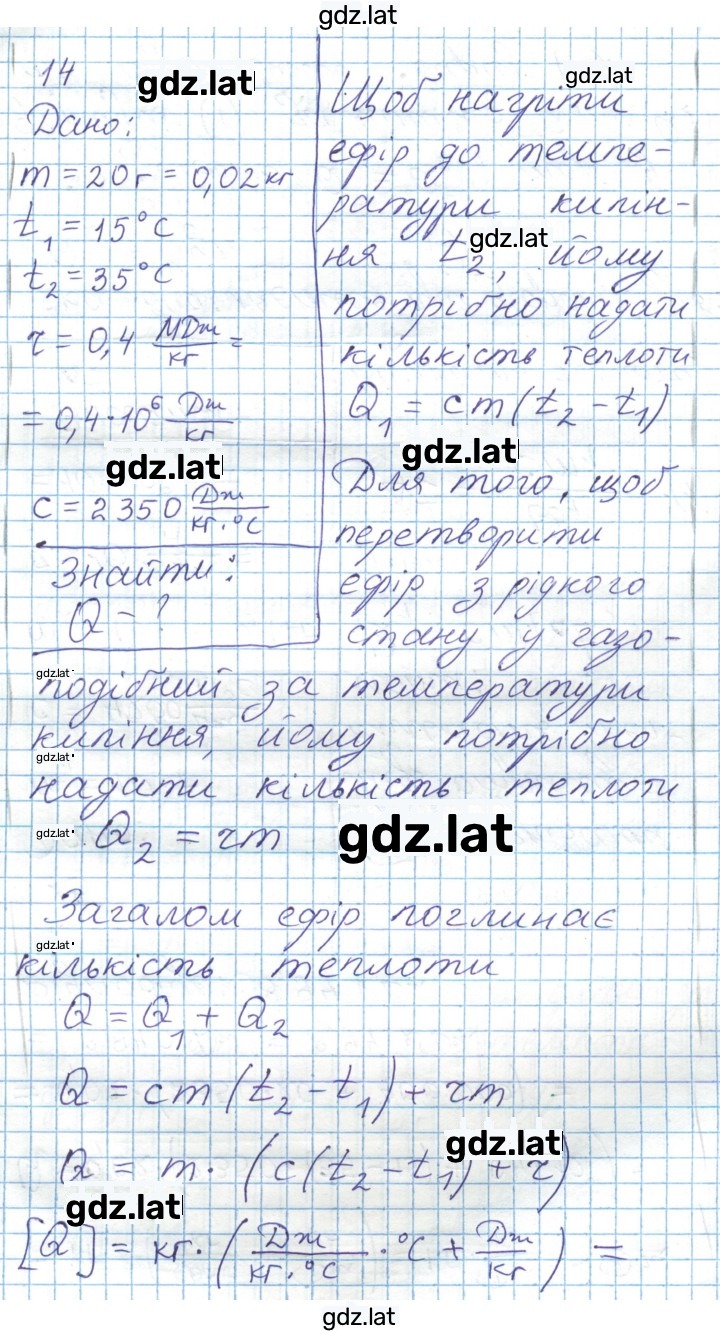 gdz.lat
14
gdz.lat
Дано:
m = 20 г = 0,02 кг
t₁ = 15°C
t₂ = 35°C
r = 0,4 МДж/кг =
= 0,4·10⁶ Дж/кг
gdz.lat
c = 2350 Дж/(кг·°C)
Знайти:
Q - ?
gdz.lat
Щоб нагріти
ефір до темпе-
ратури кипін-
gdz.lat
ня t₂, йому
потрібно надати
кількість теплоти
Q₁ = cm(t₂ - t₁)
gdz.lat
Для того, щоб
перетворити
ефір з рідкого
стану у газо-
gdz.lat
подібний за температури
кипіння, йому потрібно
gdz.lat
надати кількість теплоти
gdz.lat
Q₂ = rm
gdz.lat
Загалом ефір поглинає
gdz.lat
кількість теплоти
Q = Q₁ + Q₂
Q = cm(t₂ - t₁) + rm
gdz.lat
Q = m·(c(t₂ - t₁) + r)
gdz.lat
[Q] = кг·(Дж/(кг·°C)·°C + Дж/кг) =
gdz.lat